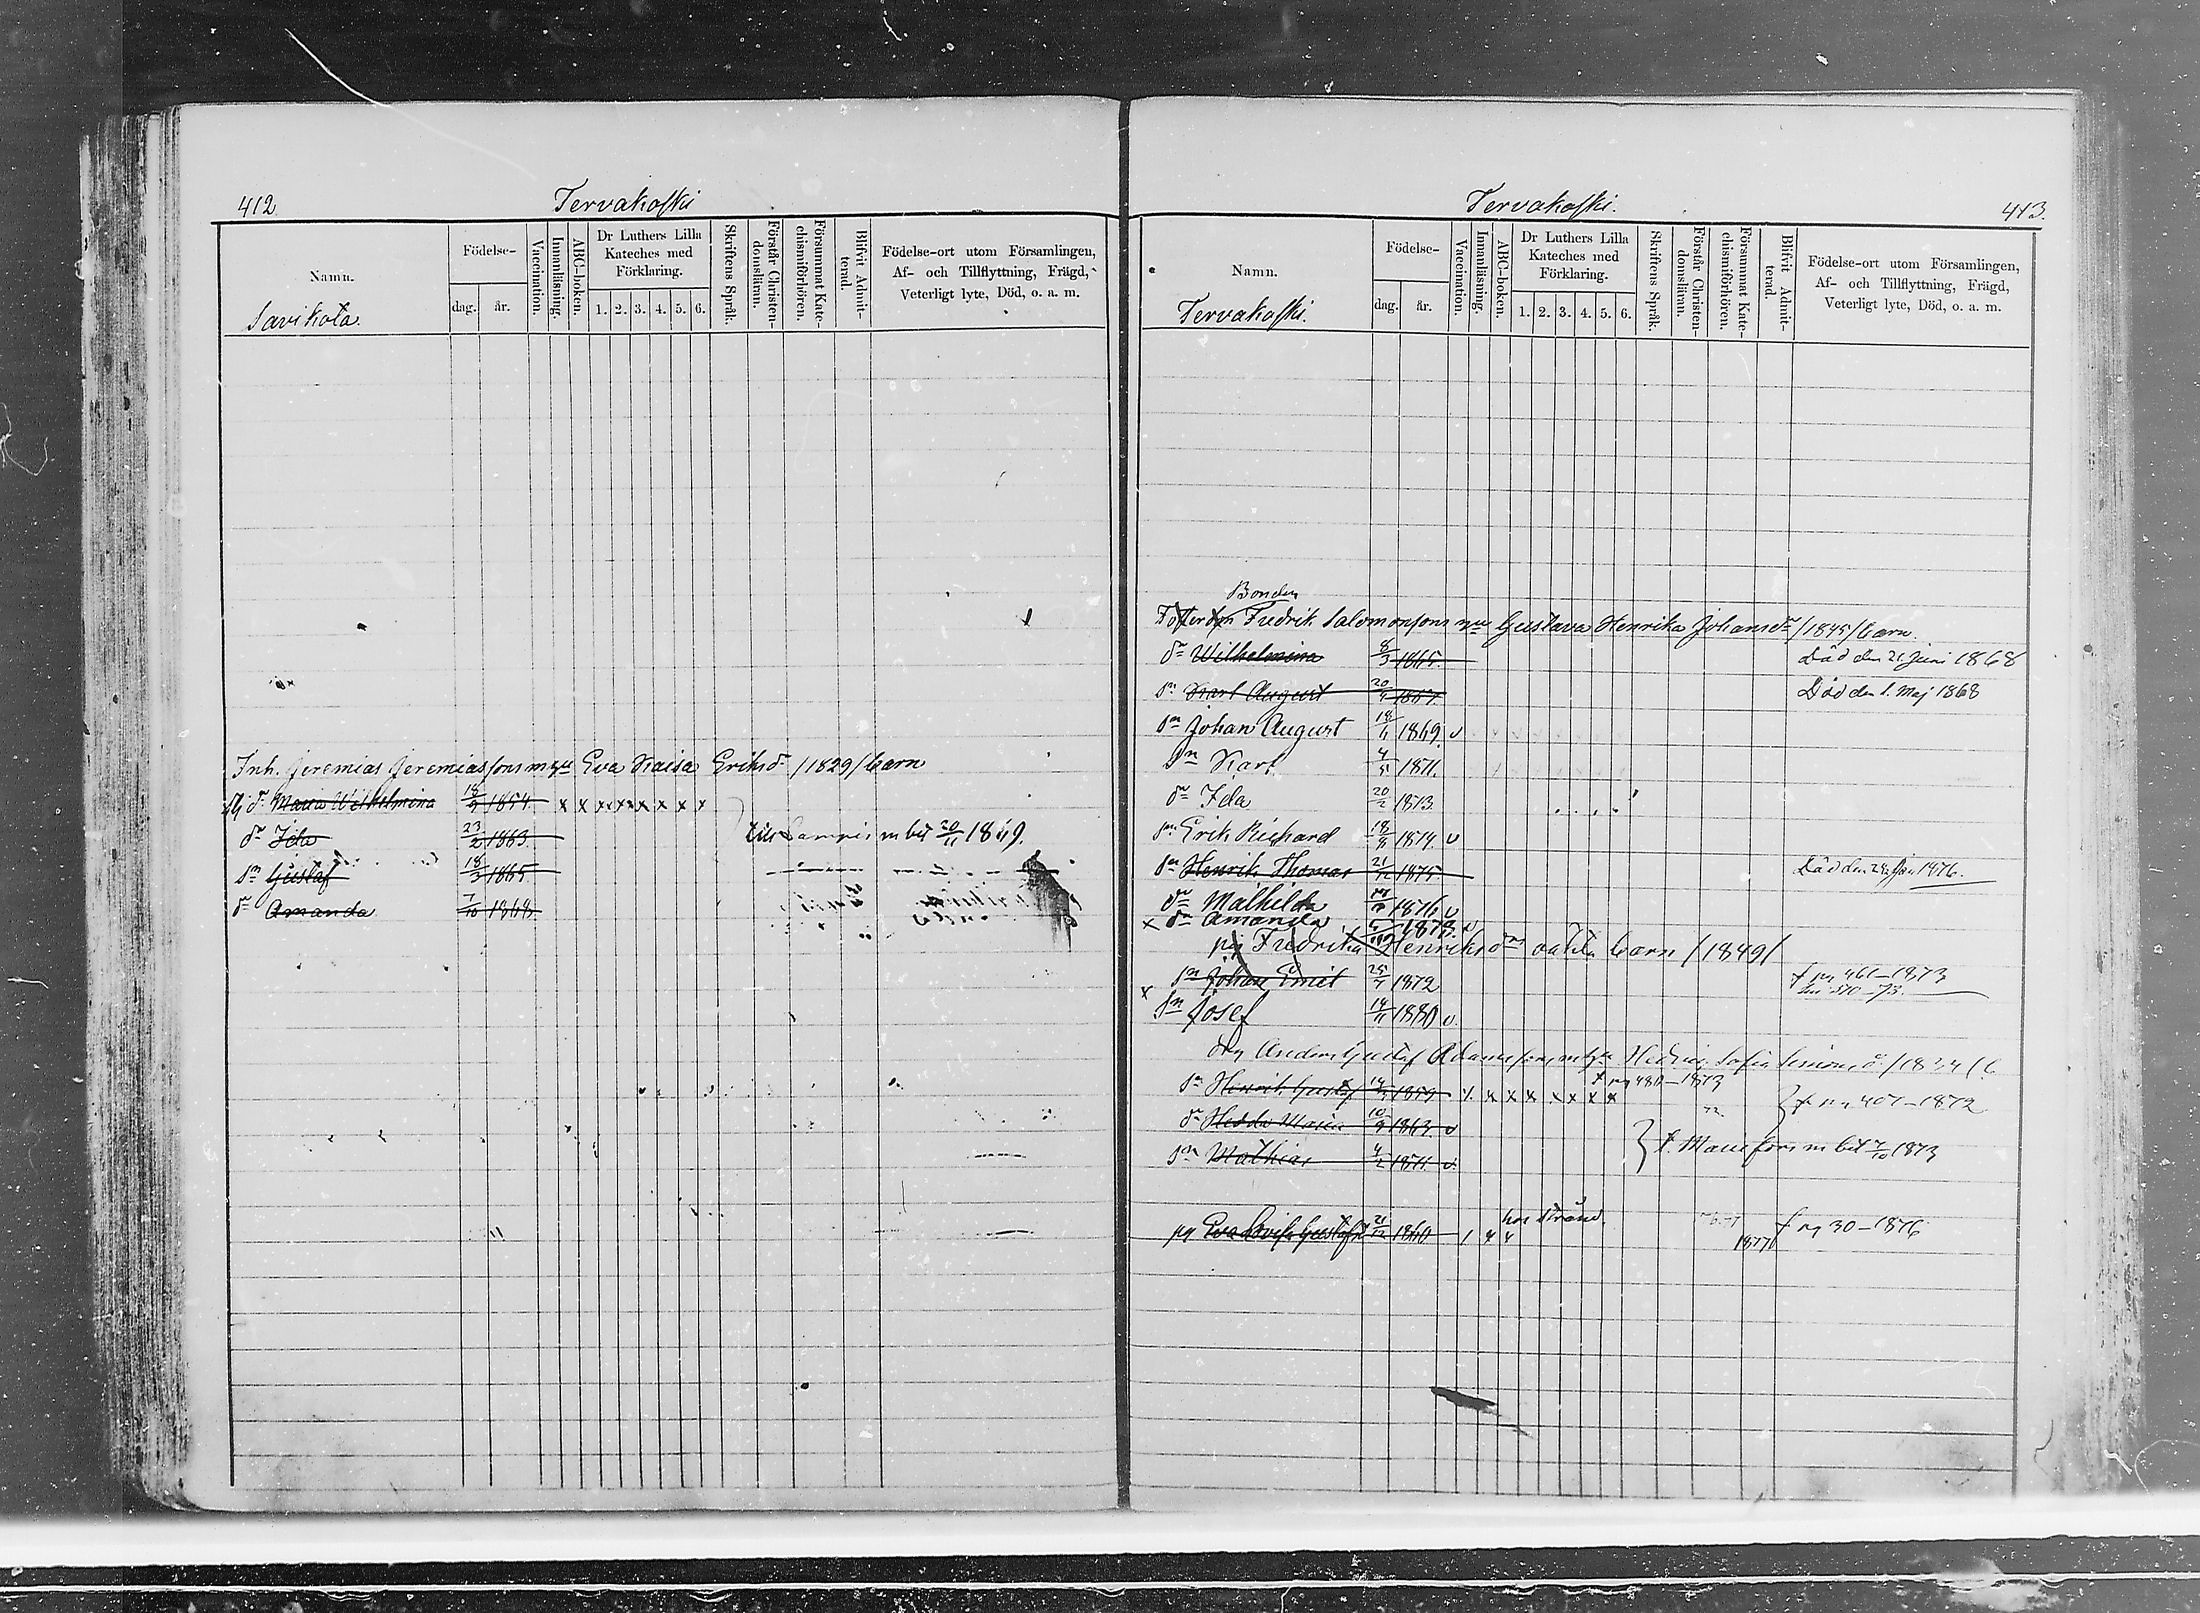 412 Tervakoski
Namn. Födelse- Vaccination. Innanläsning. ABC-boken. Dr Luthers Lilla Kateches med Förklaring. Skriftens Språk. Förstår Christendomsläran. Försummat Katechismiförhören. Blifvit Admitterad. Födelse-ort utom Församlingen, Af- och Tillflyttning, Frägd, Veterligt lyte, Död, o. a. m.
dag. år. 1. 2. 3. 4. 5. 6.
Savikota.
Inh. Jeremias Jeremiassons m hu Eva Kaisa Eriksdr /1829/ barn
dr Maria Wilhelmina 18/9 1854 x x x x x x x x x
dr Ida 23/2 1863. m bet 20/11 1869.
sn Gustaf 18/3 1865
dr Amanda 7/10 1868
Tervakoski. 413.
Namn. Födelse- Vaccination. Innanläsning. ABC-boken. Dr Luthers Lilla Kateches med Förklaring. Skriftens Språk. Förstår Christendomsläran. Försummat Katechismiförhören. Blifvit Admitterad. Födelse-ort utom Församlingen, Af- och Tillflyttning, Frägd, Veterligt lyte, Död, o. a. m.
dag. år. 1. 2. 3. 4. 5. 6.
Tervakoski.
Bonden
Fredrik Salomonsons Gustava Henrika Johansdr /1845/ barn
dr Wilhelmina 8/3 1865. Död den 21 Juni 1868
sn Karl August 1867. Död den 1. Maj 1868
sn Johan August 1869. v
sn Karl 4/5 1871.
dr Ida 20/2 1873
sn Erik Richard 18/8 1874. v
sn Henrik Thomas 21/12 1875 Död den Jan 1876.
dr Mathilda 1876 v
x dr Amanda 1878. v
pig Fredrika Henriksdr oäkta barn /1849/
sn Johan Emil 25/7 1872 f pg 461-1873
x
sn Josef 14/11 1880 v.
Anders Gustaf Hedvig Sofia /1834/
sn Henrik Gustaf 1859 x x x x x x x
dr Hedda Maria 10/9 1863. v f pg 407-1872
sn Mathias 4/2 1871 v. m bet 1873
hos
pg Eva Lovisa 21/12 1860 f pg 30-1876
1877